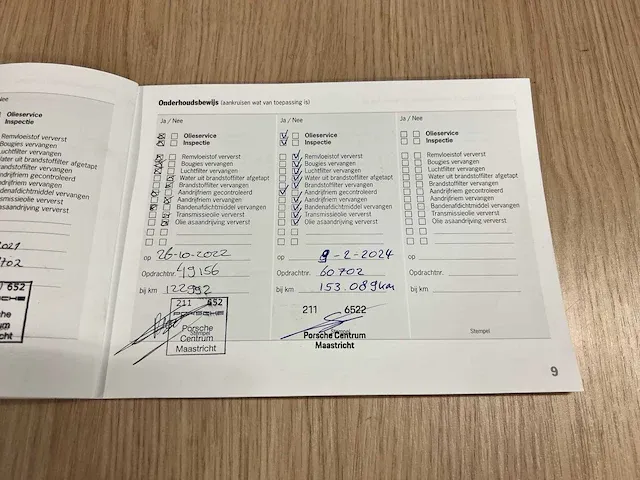 Nee
Olieservice
Inspectie
Remvloeistof ververst
Bougies vervangen
Luchtfilter vervangen
Water uit brandstoffilter afgetapt
Brandstoffilter vervangen
Aandrijfriem gecontroleerd
Aandrijfriem vervangen
Bandenafdichtmiddel vervangen
Transmissieolie ververst
Olie asaandrijving ververst
2021
702
652
Onderhoudsbewijs (aankruisen wat van toepassing is)
Ja / Nee
Olieservice
Inspectie
Remvloeistof ververst
Bougies vervangen
Luchtfilter vervangen
Water uit brandstoffilter afgetapt
Brandstoffilter vervangen
Aandrijfriem gecontroleerd
Aandrijfriem vervangen
Bandenafdichtmiddel vervangen
Transmissieolie ververst
Olie asaandrijving ververst
op 26-10-2022
Opdrachtnr. 49156
bij km 122992
211 652
PORSCHE
Porsche
Stempel
Centrum
Maastricht
Ja / Nee
Olieservice
Inspectie
Remvloeistof ververst
Bougies vervangen
Luchtfilter vervangen
Water uit brandstoffilter afgetapt
Brandstoffilter vervangen
Aandrijfriem gecontroleerd
Aandrijfriem vervangen
Bandenafdichtmiddel vervangen
Transmissieolie ververst
Olie asaandrijving ververst
op 9-2-2024
Opdrachtnr. 60702
bij km 153.089km
211 6522
Stempel
Porsche Centrum
Maastricht
Ja / Nee
Olieservice
Inspectie
Remvloeistof ververst
Bougies vervangen
Luchtfilter vervangen
Water uit brandstoffilter afgetapt
Brandstoffilter vervangen
Aandrijfriem gecontroleerd
Aandrijfriem vervangen
Bandenafdichtmiddel vervangen
Transmissieolie ververst
Olie asaandrijving ververst
op
Opdrachtnr.
bij km
Stempel
9